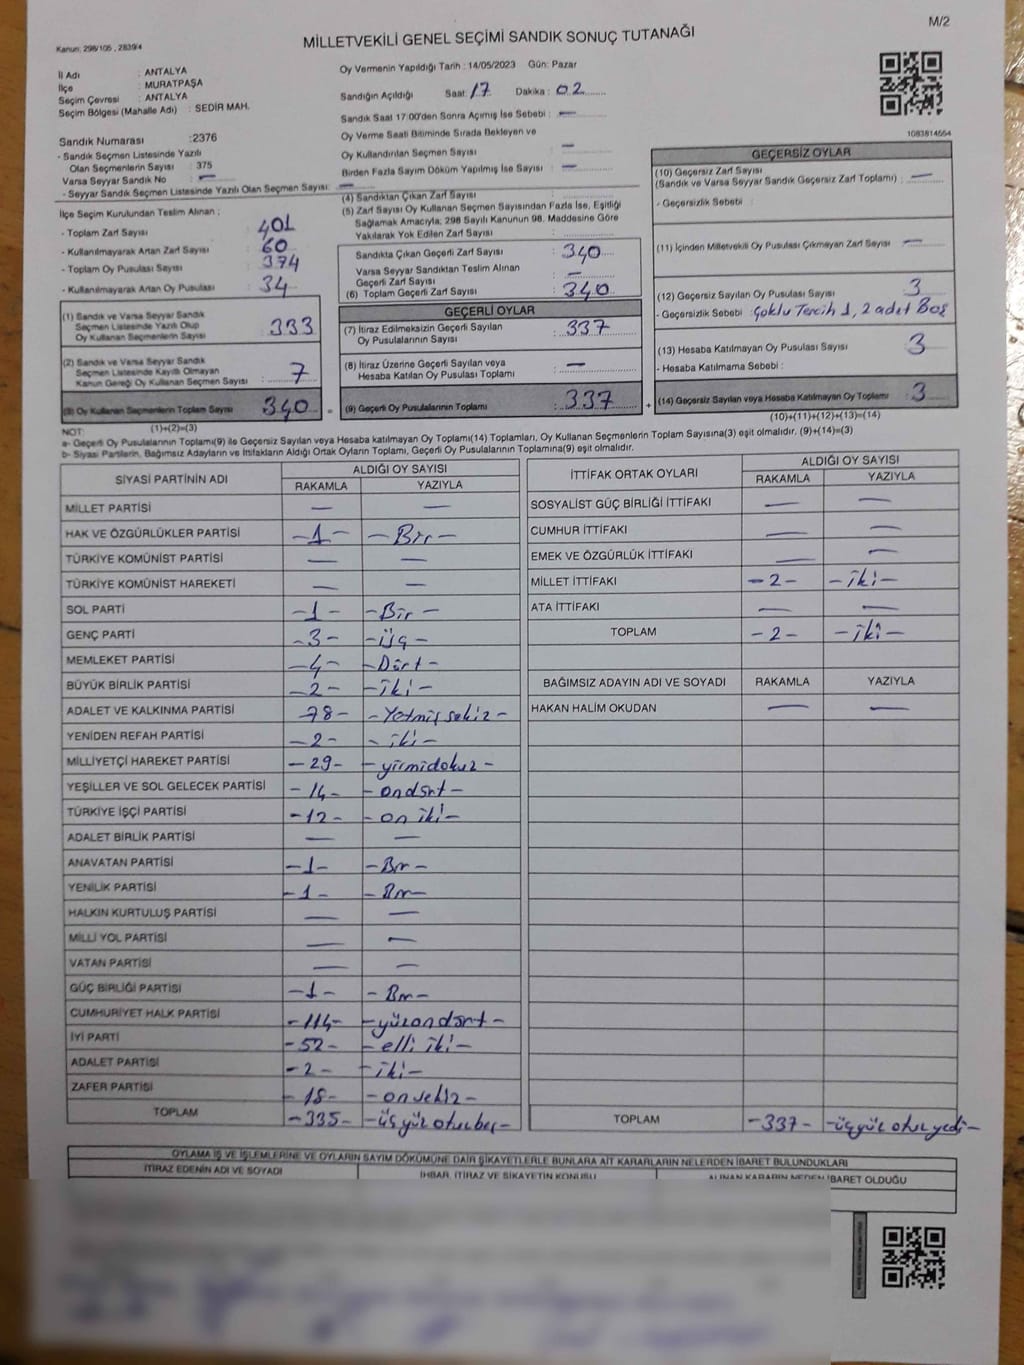 M/2
Kanun: 298/105 , 2839/4
MİLLETVEKİLİ GENEL SEÇİMİ SANDIK SONUÇ TUTANAĞI
İl Adı : ANTALYA
İlçe : MURATPAŞA
Seçim Çevresi : ANTALYA
Seçim Bölgesi (Mahalle Adı) : SEDİR MAH.
Sandık Numarası :2376
- Sandık Seçmen Listesinde Yazılı
Olan Seçmenlerin Sayısı : 375
Varsa Seyyar Sandık No : —
- Seyyar Sandık Seçmen Listesinde Yazılı Olan Seçmen Sayısı: —
Oy Vermenin Yapıldığı Tarih : 14/05/2023 Gün: Pazar
Sandığın Açıldığı Saat: 17 Dakika : 02
Sandık Saat 17:00'den Sonra Açımış İse Sebebi : —
Oy Verme Saati Bitiminde Sırada Bekleyen ve
Oy Kullandırılan Seçmen Sayısı : —
Birden Fazla Sayım Döküm Yapılmış İse Sayısı : —
1083814664
İlçe Seçim Kurulundan Teslim Alınan ;
- Toplam Zarf Sayısı : 401
- Kullanılmayarak Artan Zarf Sayısı : 60
- Toplam Oy Pusulası Sayısı : 374
- Kullanılmayarak Artan Oy Pusulası : 34
(1) Sandık ve Varsa Seyyar Sandık
Seçmen Listesinde Yazılı Olup
Oy Kullanan Seçmenlerin Sayısı : 333
(2) Sandık ve Varsa Seyyar Sandık
Seçmen Listesinde Kayıtlı Olmayan
Kanun Gereği Oy Kullanan Seçmen Sayısı : 7
(3) Oy Kullanan Seçmenlerin Toplam Sayısı : 340
(1)+(2)=(3)
(4) Sandıktan Çıkan Zarf Sayısı :
(5) Zarf Sayısı Oy Kullanan Seçmen Sayısından Fazla İse, Eşitliği
Sağlamak Amacıyla; 298 Sayılı Kanunun 98. Maddesine Göre
Yakılarak Yok Edilen Zarf Sayısı :
Sandıkta Çıkan Geçerli Zarf Sayısı : 340
Varsa Seyyar Sandıktan Teslim Alınan
Geçerli Zarf Sayısı : —
(6) Toplam Geçerli Zarf Sayısı : 340
GEÇERLİ OYLAR
(7) İtiraz Edilmeksizin Geçerli Sayılan
Oy Pusulalarının Sayısı : 337
(8) İtiraz Üzerine Geçerli Sayılan veya
Hesaba Katılan Oy Pusulası Toplamı : —
= (9) Geçerli Oy Pusulalarının Toplamı : 337 +
GEÇERSİZ OYLAR
(10) Geçersiz Zarf Sayısı : —
(Sandık ve Varsa Seyyar Sandık Geçersiz Zarf Toplamı)
- Geçersizlik Sebebi :
(11) İçinden Milletvekili Oy Pusulası Çıkmayan Zarf Sayısı : —
(12) Geçersiz Sayılan Oy Pusulası Sayısı : 3
- Geçersizlik Sebebi : Çoklu Tercih 1, 2 adet Boş
(13) Hesaba Katılmayan Oy Pusulası Sayısı : 3
- Hesaba Katılmama Sebebi :
(14) Geçersiz Sayılan veya Hesaba Katılmayan Oy Toplamı : 3
(10)+(11)+(12)+(13)=(14)
NOT:
a- Geçerli Oy Pusulalarının Toplamı(9) ile Geçersiz Sayılan veya Hesaba katılmayan Oy Toplamı(14) Toplamları, Oy Kullanan Seçmenlerin Toplam Sayısına(3) eşit olmalıdır. (9)+(14)=(3)
b- Siyasi Partilerin, Bağımsız Adayların ve İttifakların Aldığı Ortak Oyların Toplamı, Geçerli Oy Pusulalarının Toplamına(9) eşit olmalıdır.
SİYASİ PARTİNİN ADI ALDIĞI OY SAYISI
RAKAMLA YAZIYLA
MİLLET PARTİSİ — —
HAK VE ÖZGÜRLÜKLER PARTİSİ -1- -Bir-
TÜRKİYE KOMÜNİST PARTİSİ — —
TÜRKİYE KOMÜNİST HAREKETİ — —
SOL PARTİ -1- -Bir-
GENÇ PARTİ -3- -üç-
MEMLEKET PARTİSİ -4- -Dört-
BÜYÜK BİRLİK PARTİSİ -2- -iki-
ADALET VE KALKINMA PARTİSİ -78- -Yetmişsekiz-
YENİDEN REFAH PARTİSİ -2- -iki-
MİLLİYETÇİ HAREKET PARTİSİ -29- -yirmidokuz-
YEŞİLLER VE SOL GELECEK PARTİSİ -14- -ondört-
TÜRKİYE İŞÇİ PARTİSİ -12- -on iki-
ADALET BİRLİK PARTİSİ — —
ANAVATAN PARTİSİ -1- -Bir-
YENİLİK PARTİSİ -1- -Bir-
HALKIN KURTULUŞ PARTİSİ — —
MİLLİ YOL PARTİSİ — —
VATAN PARTİSİ — —
GÜÇ BİRLİĞİ PARTİSİ -1- -Bir-
CUMHURİYET HALK PARTİSİ -114- -yüzondört-
İYİ PARTİ -52- -elli iki-
ADALET PARTİSİ -2- -iki-
ZAFER PARTİSİ -18- -onsekiz-
TOPLAM -335- -üçyüz otuzbeş-
İTTİFAK ORTAK OYLARI ALDIĞI OY SAYISI
RAKAMLA YAZIYLA
SOSYALİST GÜÇ BİRLİĞİ İTTİFAKI — —
CUMHUR İTTİFAKI — —
EMEK VE ÖZGÜRLÜK İTTİFAKI — —
MİLLET İTTİFAKI -2- -iki-
ATA İTTİFAKI — —
TOPLAM -2- -iki-
BAĞIMSIZ ADAYIN ADI VE SOYADI RAKAMLA YAZIYLA
HAKAN HALİM OKUDAN — —
TOPLAM -337- -üçyüz otuzyedi-
OYLAMA İŞ VE İŞLEMLERİNE VE OYLARIN SAYIM DÖKÜMÜNE DAİR ŞİKAYETLERLE BUNLARA AİT KARARLARIN NELERDEN İBARET BULUNDUKLARI
İTİRAZ EDENİN ADI VE SOYADI İHBAR, İTİRAZ VE ŞİKAYETİN KONUSU ALINAN KARARIN NEDEN İBARET OLDUĞU